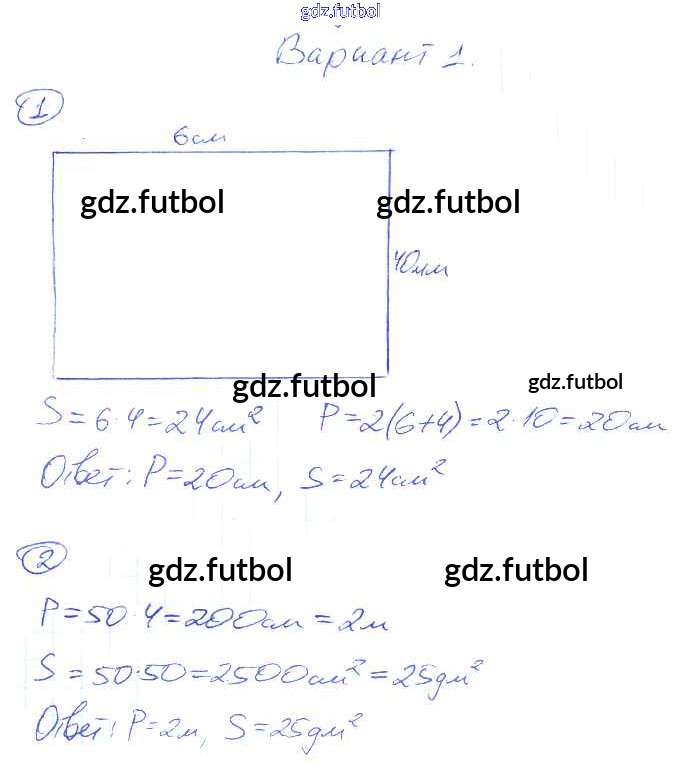 gdz.futbol
Вариант 1.
1
6см
gdz.futbol gdz.futbol
40мм
gdz.futbol gdz.futbol
S = 6·4 = 24см² P = 2(6+4) = 2·10 = 20см
Ответ: P = 20см, S = 24см²
2
gdz.futbol gdz.futbol
P = 50·4 = 200см = 2м
S = 50·50 = 2500см² = 25дм²
Ответ: P = 2м, S = 25дм²